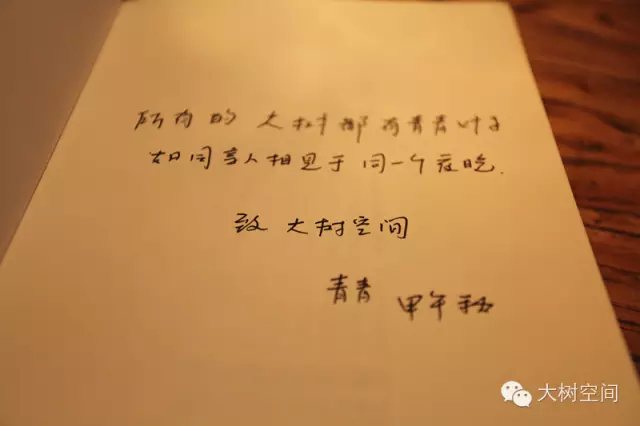 所有的大树都有青青叶子
如同言人相见于同一个夜晚.
致 大树空间
青青 甲午秋
大树空间